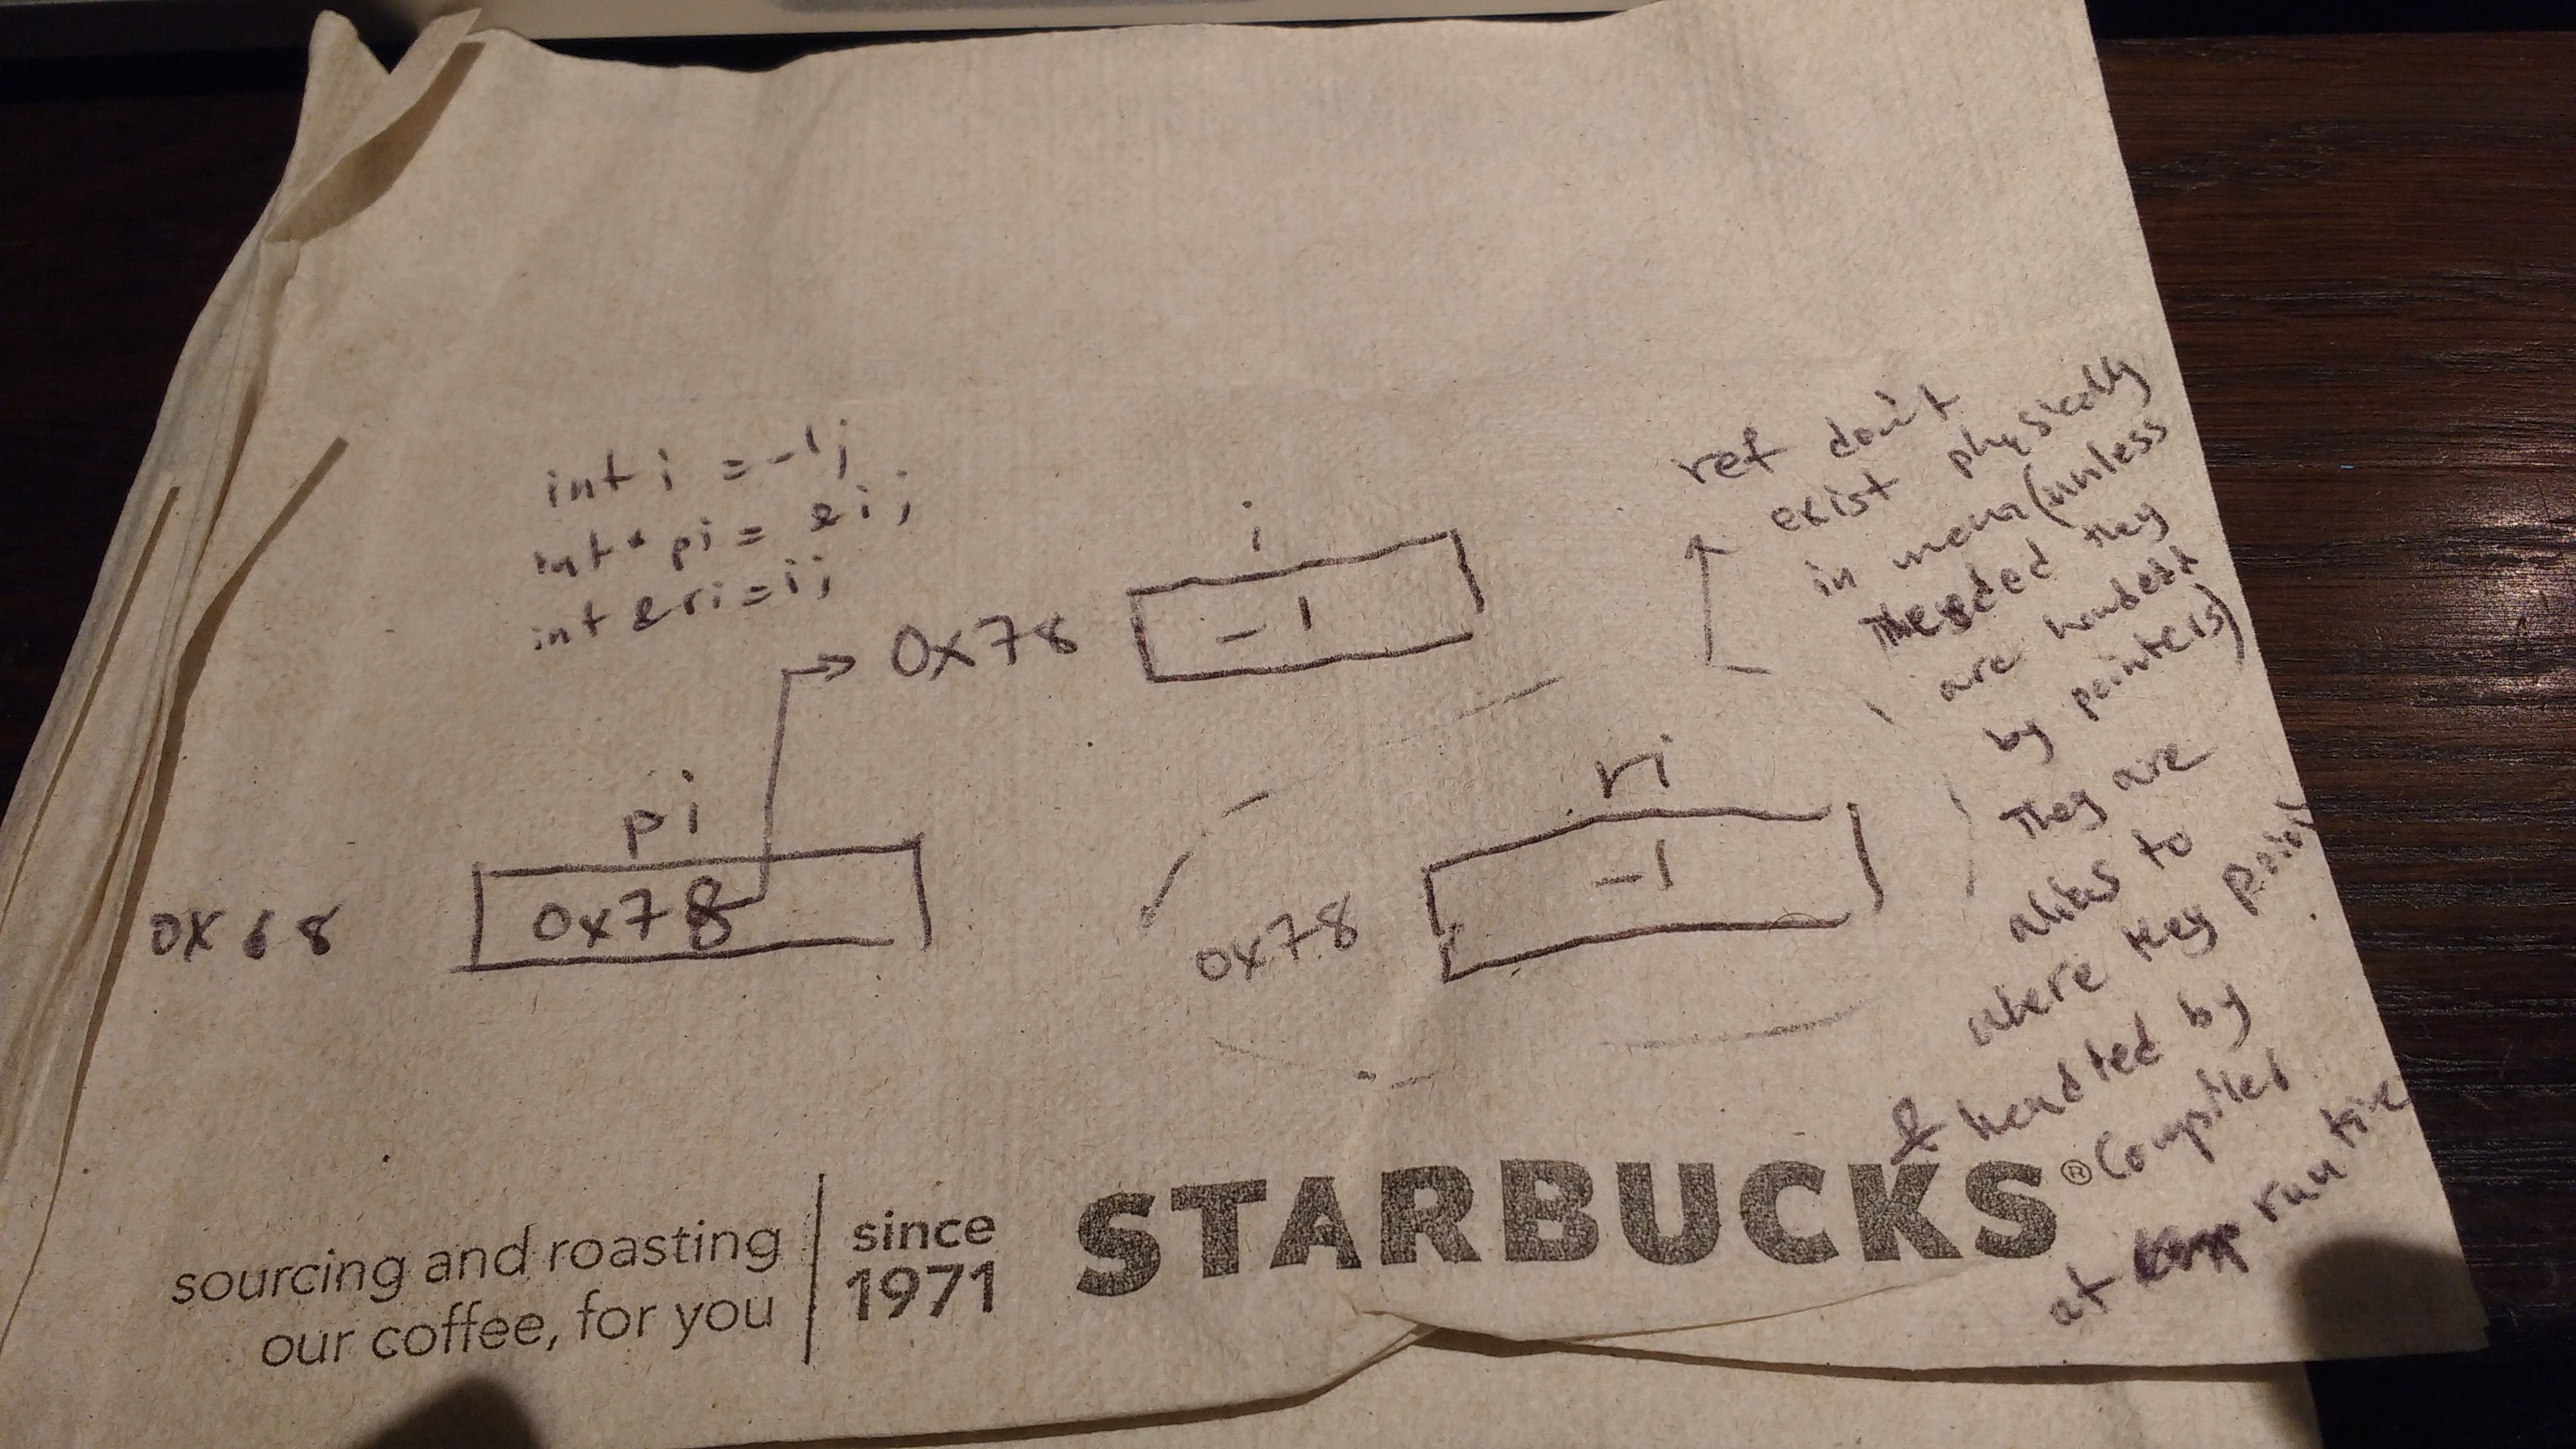 int i = -1;
int* pi = &i;
int &ri = i;
i
0x78
-1
pi
0x68
0x78
ri
0x78
-1
ref don't
exist physically
in mem (unless
needed they
are
by pointers)
They are
alias to
where they point
& handled by
Compiler
at run time
sourcing and roasting
our coffee, for you
since
1971
STARBUCKS®